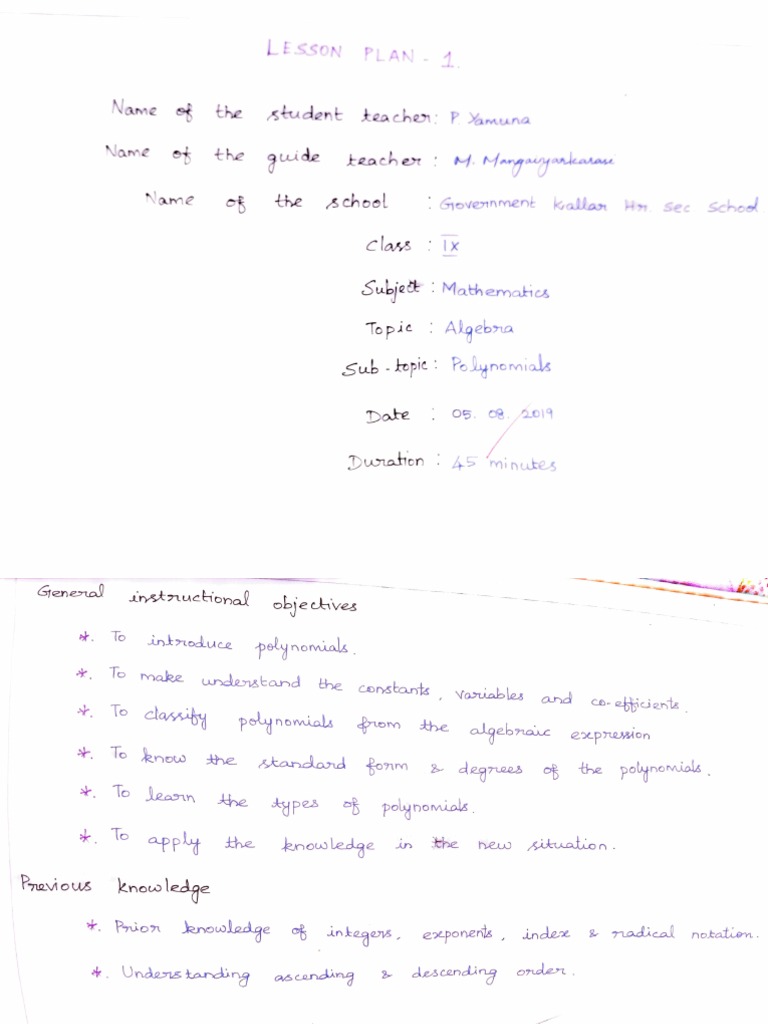 LESSON PLAN - 1.
Name of the student teacher: P. Yamuna
Name of the guide teacher : M. Mangaiyarkarasi
Name of the school : Government Kallar Hr. Sec. School
Class : IX
Subject : Mathematics
Topic : Algebra
Sub-topic : Polynomials
Date : 05. 08. 2019
Duration : 45 minutes
General instructional objectives
*. To introduce polynomials.
*. To make understand the constants, variables and co-efficients.
*. To classify polynomials from the algebraic expression
*. To know the standard form & degrees of the polynomials.
*. To learn the types of polynomials.
*. To apply the knowledge in the new situation.
Previous knowledge
*. Prior knowledge of integers, exponents, index & radical notation.
*. Understanding ascending & descending order.